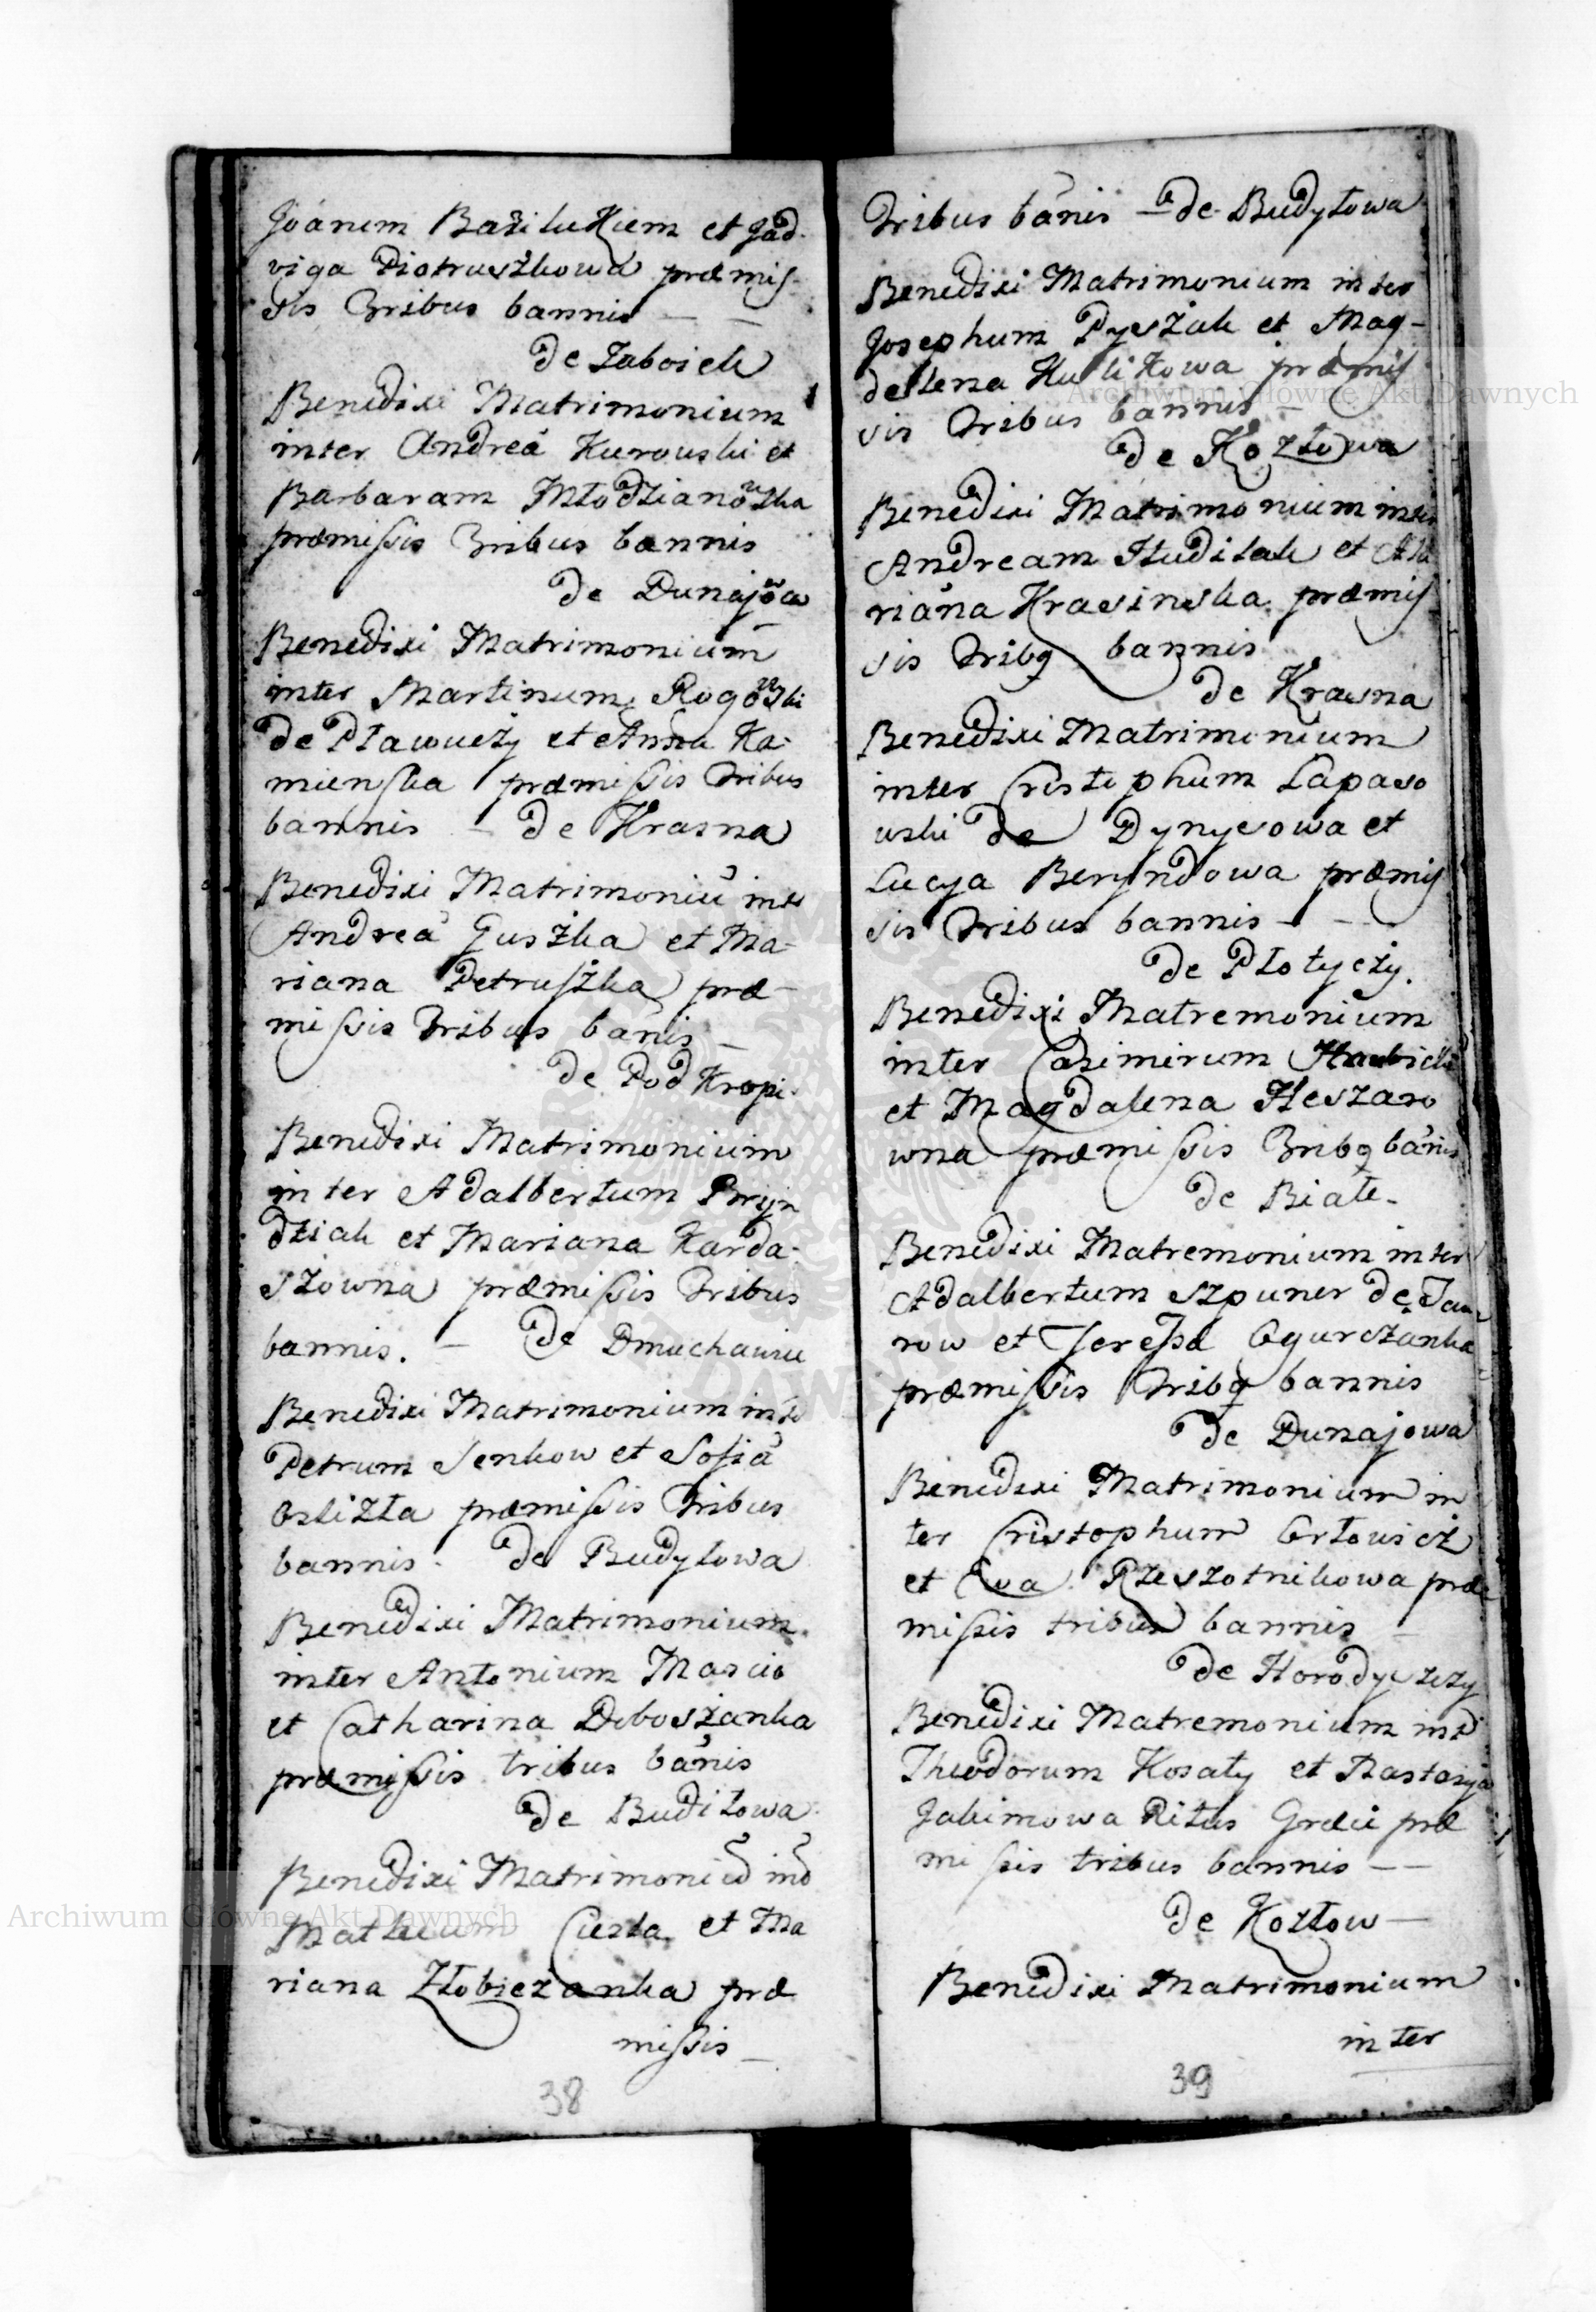 Joánem BaziluKiem et Jad-
viga Piotruszkowa præmis-
sis Tribus bannis —
de Zaboiek
Benedixi Matrimonium
inter Andreā Kurowski et
Barbaram Młodzianowska
præmissis Tribus bannis
de Dunajowa
Benedixi Matrimonium
inter Martinum Rogowski
de Pławuczy et Anna Ka-
mienska præmissis Tribus
bannis — de Krasna
Benedixi Matrimoniū inter
Andreā Guszka et Ma-
riana Petruszka præ-
missis Tribus bānis —
de PodKropi.
Benedixi Matrimonium
inter Adalbertum Bryn
dziak et Mariana Karda-
szowna præmissis Tribus
bannis. — de Dmuchawiec
Benedixi Matrimonium inter
Petrum Senkow et Sofiā
Oslizła præmissis Tribus
bannis. de Budyłowa
Benedixi Matrimonium
inter Antonium Mascio
et Catharina Doboszanka
præmissis tribus bānis
de Budiłowa
Benedixi Matrimoniū inter
Matheum Ciezla et Ma
riana Złobiezanka præ
missis —
38
Tribus bānis — de Budyłowa
Benedixi Matrimonium inter
Josephum Pyszak et Mag-
delena KuliKowa præmis
sis Tribus bannis —
de Kozłowa
Benedixi Matrimonium inter
Andream Hudilak et Ma
riāna Krasinska præmis
sis Tribq bannis
de Krasna
Benedixi Matrimonium
inter Cristophum Lapaso
wski de Dynysowa et
Lucya Beryndowa præmis
sis Tribus bannis —
de Płotyczy.
Benedixi Matremonium
inter Casimirum
et Magdalena Heszaro
wna præmissis Tribq bānis
de Białe-
Benedixi Matremonium inter
Adalbertum Szpuner de Tau
row et Teressa Ogurczanka
præmissis Tribq bannis
de Dunajowa
Benedixi Matrimonium in
ter Cristophum Orłowicz
et Eva Rzeszotnikowa præ
missis tribus bannis —
de Horodyszczy
Benedixi Matremonium inter
Theodorum Kosaty et Nastazya
Jakimowa Ritus Græci præ
missis tribus bannis — —
de Kozłow —
Benedixi Matrimonium
inter
39
Archiwum Główne Akt Dawnych
Archiwum Główne Akt Dawnych